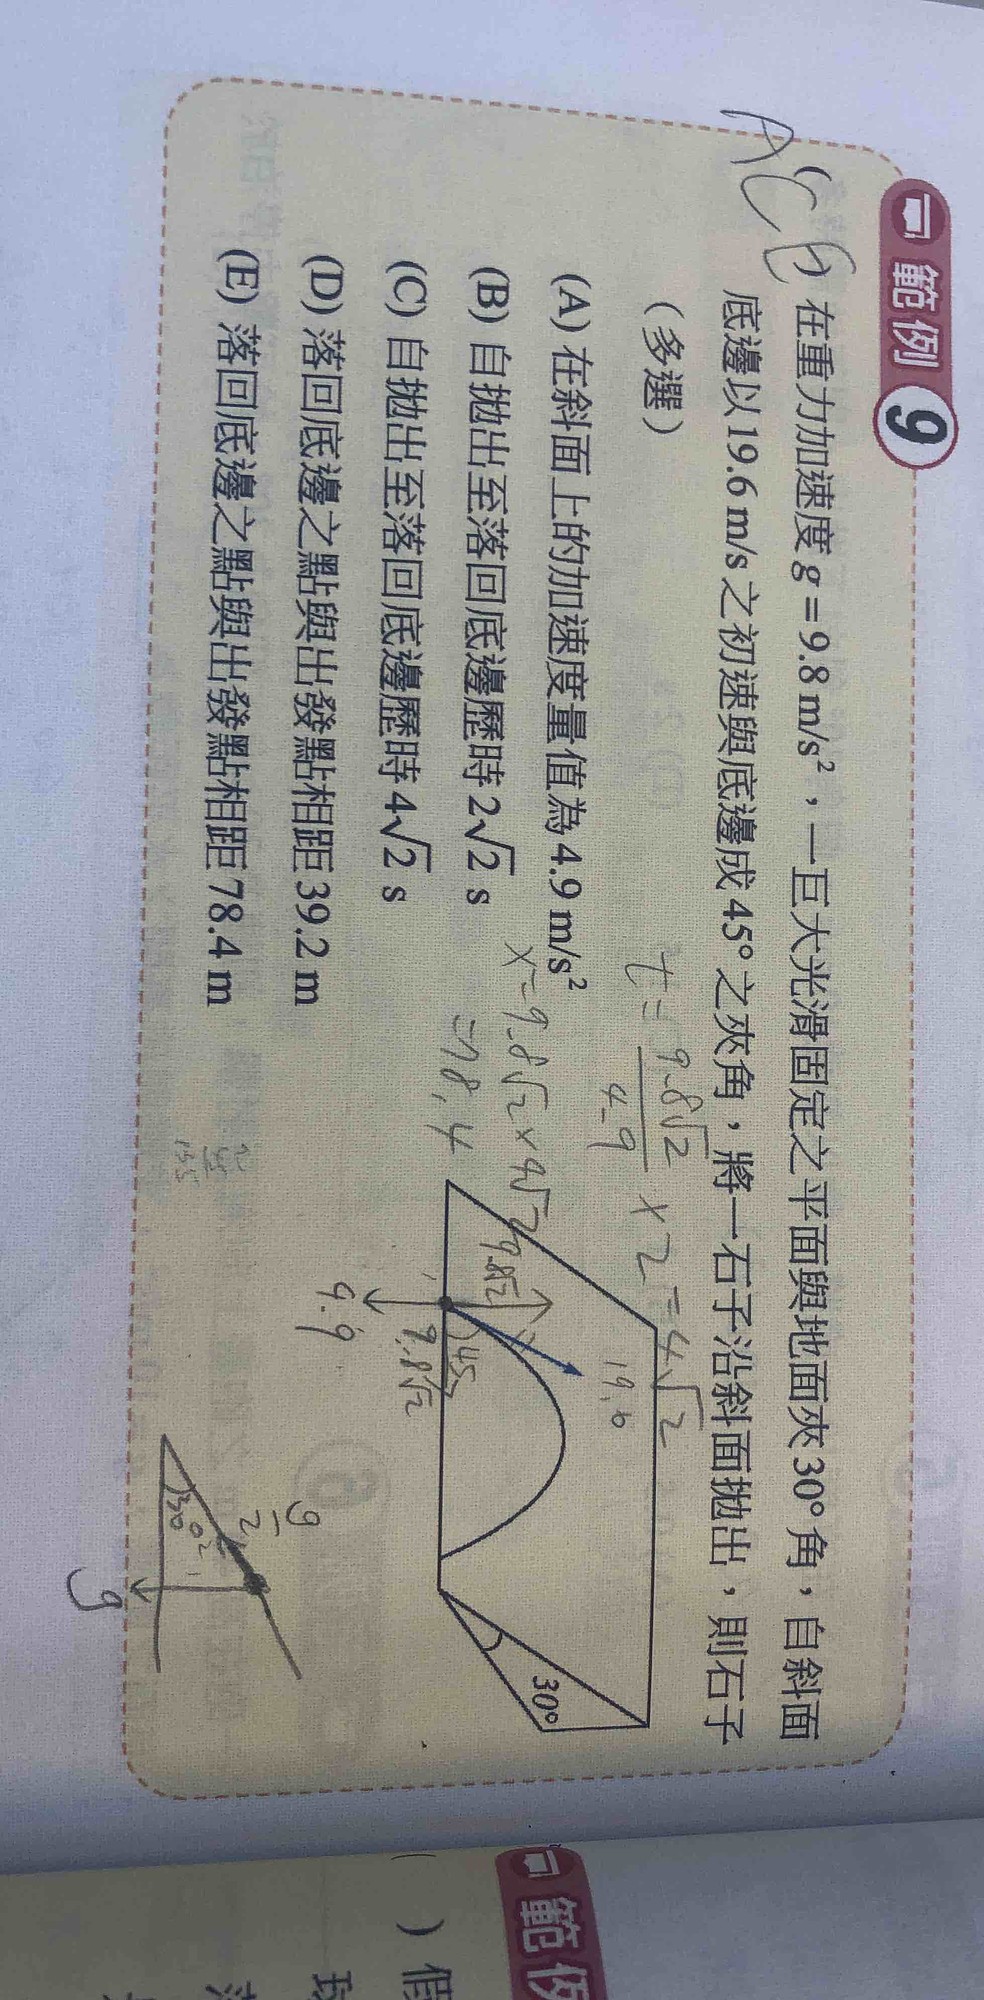 範例 9
ACE
( ) 在重力加速度 g = 9.8 m/s²，一巨大光滑固定之平面與地面夾30°角，自斜面
底邊以19.6 m/s之初速與底邊成45°之夾角，將一石子沿斜面拋出，則石子
（多選）
t = 9.8√2 / 4.9 × 2 = 4√2
(A) 在斜面上的加速度量值為4.9 m/s²
(B) 自拋出至落回底邊歷時2√2 s
x = 9.8√2 × 4√2
= 78.4
(C) 自拋出至落回底邊歷時4√2 s
(D) 落回底邊之點與出發點相距39.2 m
(E) 落回底邊之點與出發點相距78.4 m
19.6
9.8√2
45
9.8√2
4.9
30°
g/2
30°
g
範例
( ) 假
球